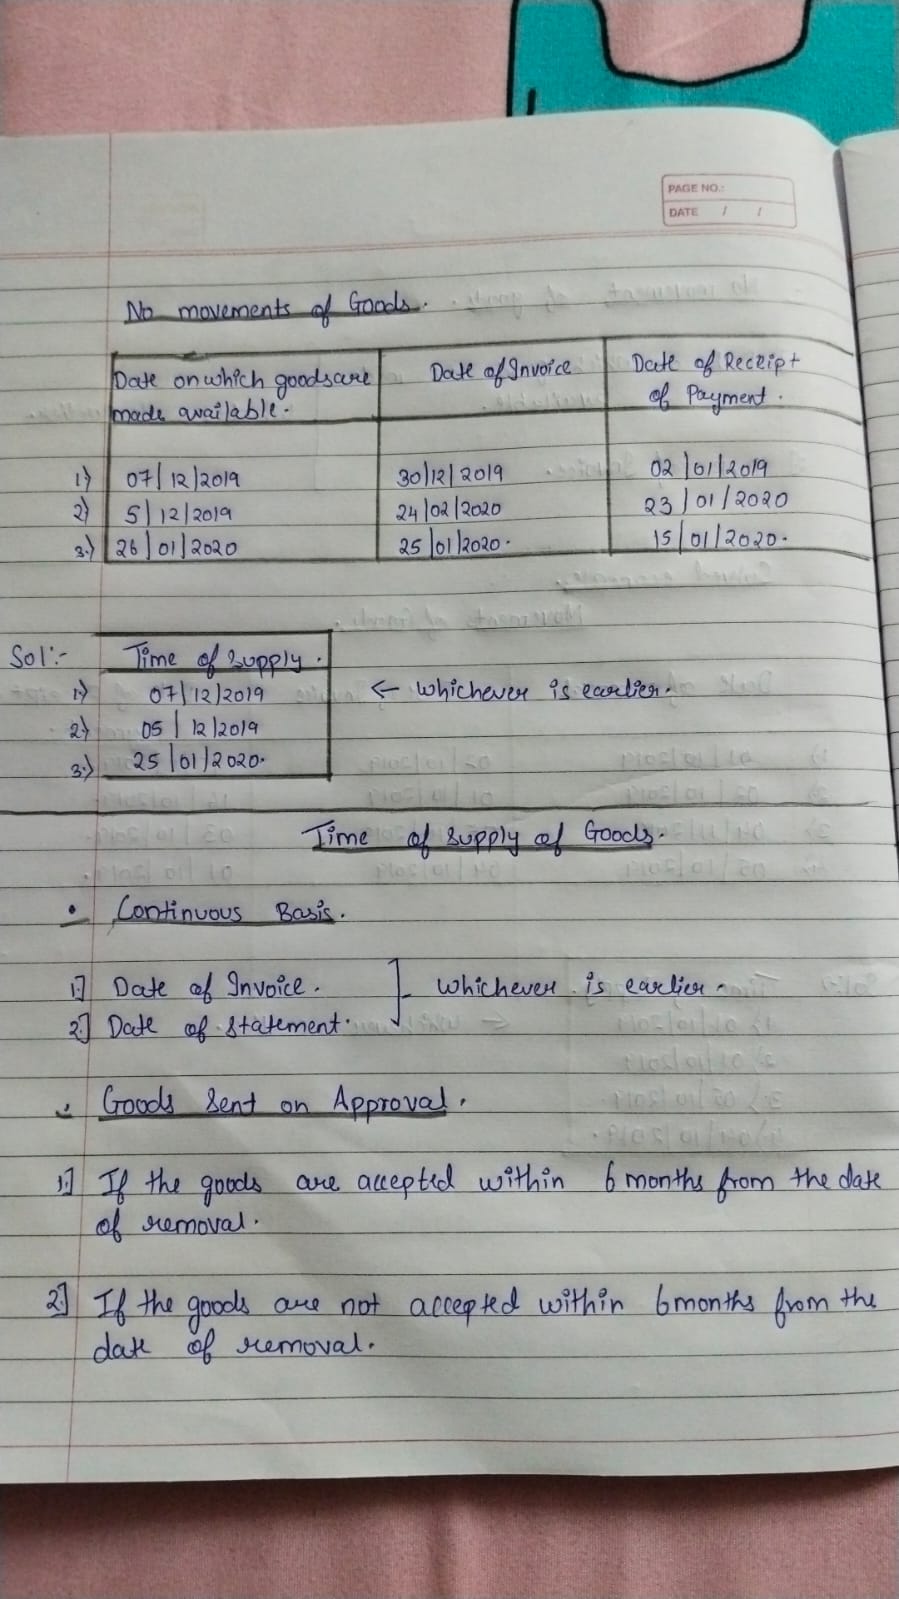 PAGE NO.:
DATE / /
No movements of Goods.
Date on which goods are made available. Date of Invoice Date of Receipt of Payment.
1) 07/12/2019 30/12/2019 02/01/2019
2) 5/12/2019 24/02/2020 23/01/2020
3.) 26/01/2020 25/01/2020. 15/01/2020.
Sol:- Time of supply.
1) 07/12/2019 ← whichever is earlier.
2) 05/12/2019
3.) 25/01/2020.
Time of supply of Goods.
• Continuous Basis.
1.] Date of Invoice. whichever is earlier.
2.] Date of statement.
Goods sent on Approval.
1.] If the goods are accepted within 6 months from the date
of removal.
2.] If the goods are not accepted within 6 months from the
date of removal.